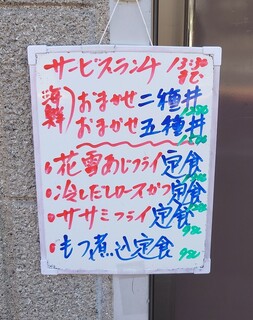 サービスランチ 13:30まで
海鮮 おまかせ二種丼
おまかせ五種丼
・花雪あじフライ定食
・冷しだしロースかつ定食
・ササミフライ定食
・もつ煮込定食 980